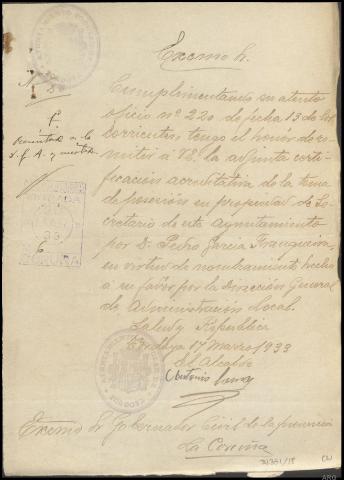 Excmo Sr.
Cumplimentando su atento
oficio nº 220 de fecha 13 de los
corrientes tengo el honor de re-
mitir a VE. la adjunta certi-
ficación acreditativa de la toma
de posesión en propiedad de Se-
cretario de este Ayuntamiento
por D. Pedro García
en virtud de nombramiento hecho
a su favor por la Dirección General
de Administración Local.
Salud y República
17 Marzo 1933
El Alcalde
Antonio
Excmo Sr Gobernador Civil de la provincia
La Coruña